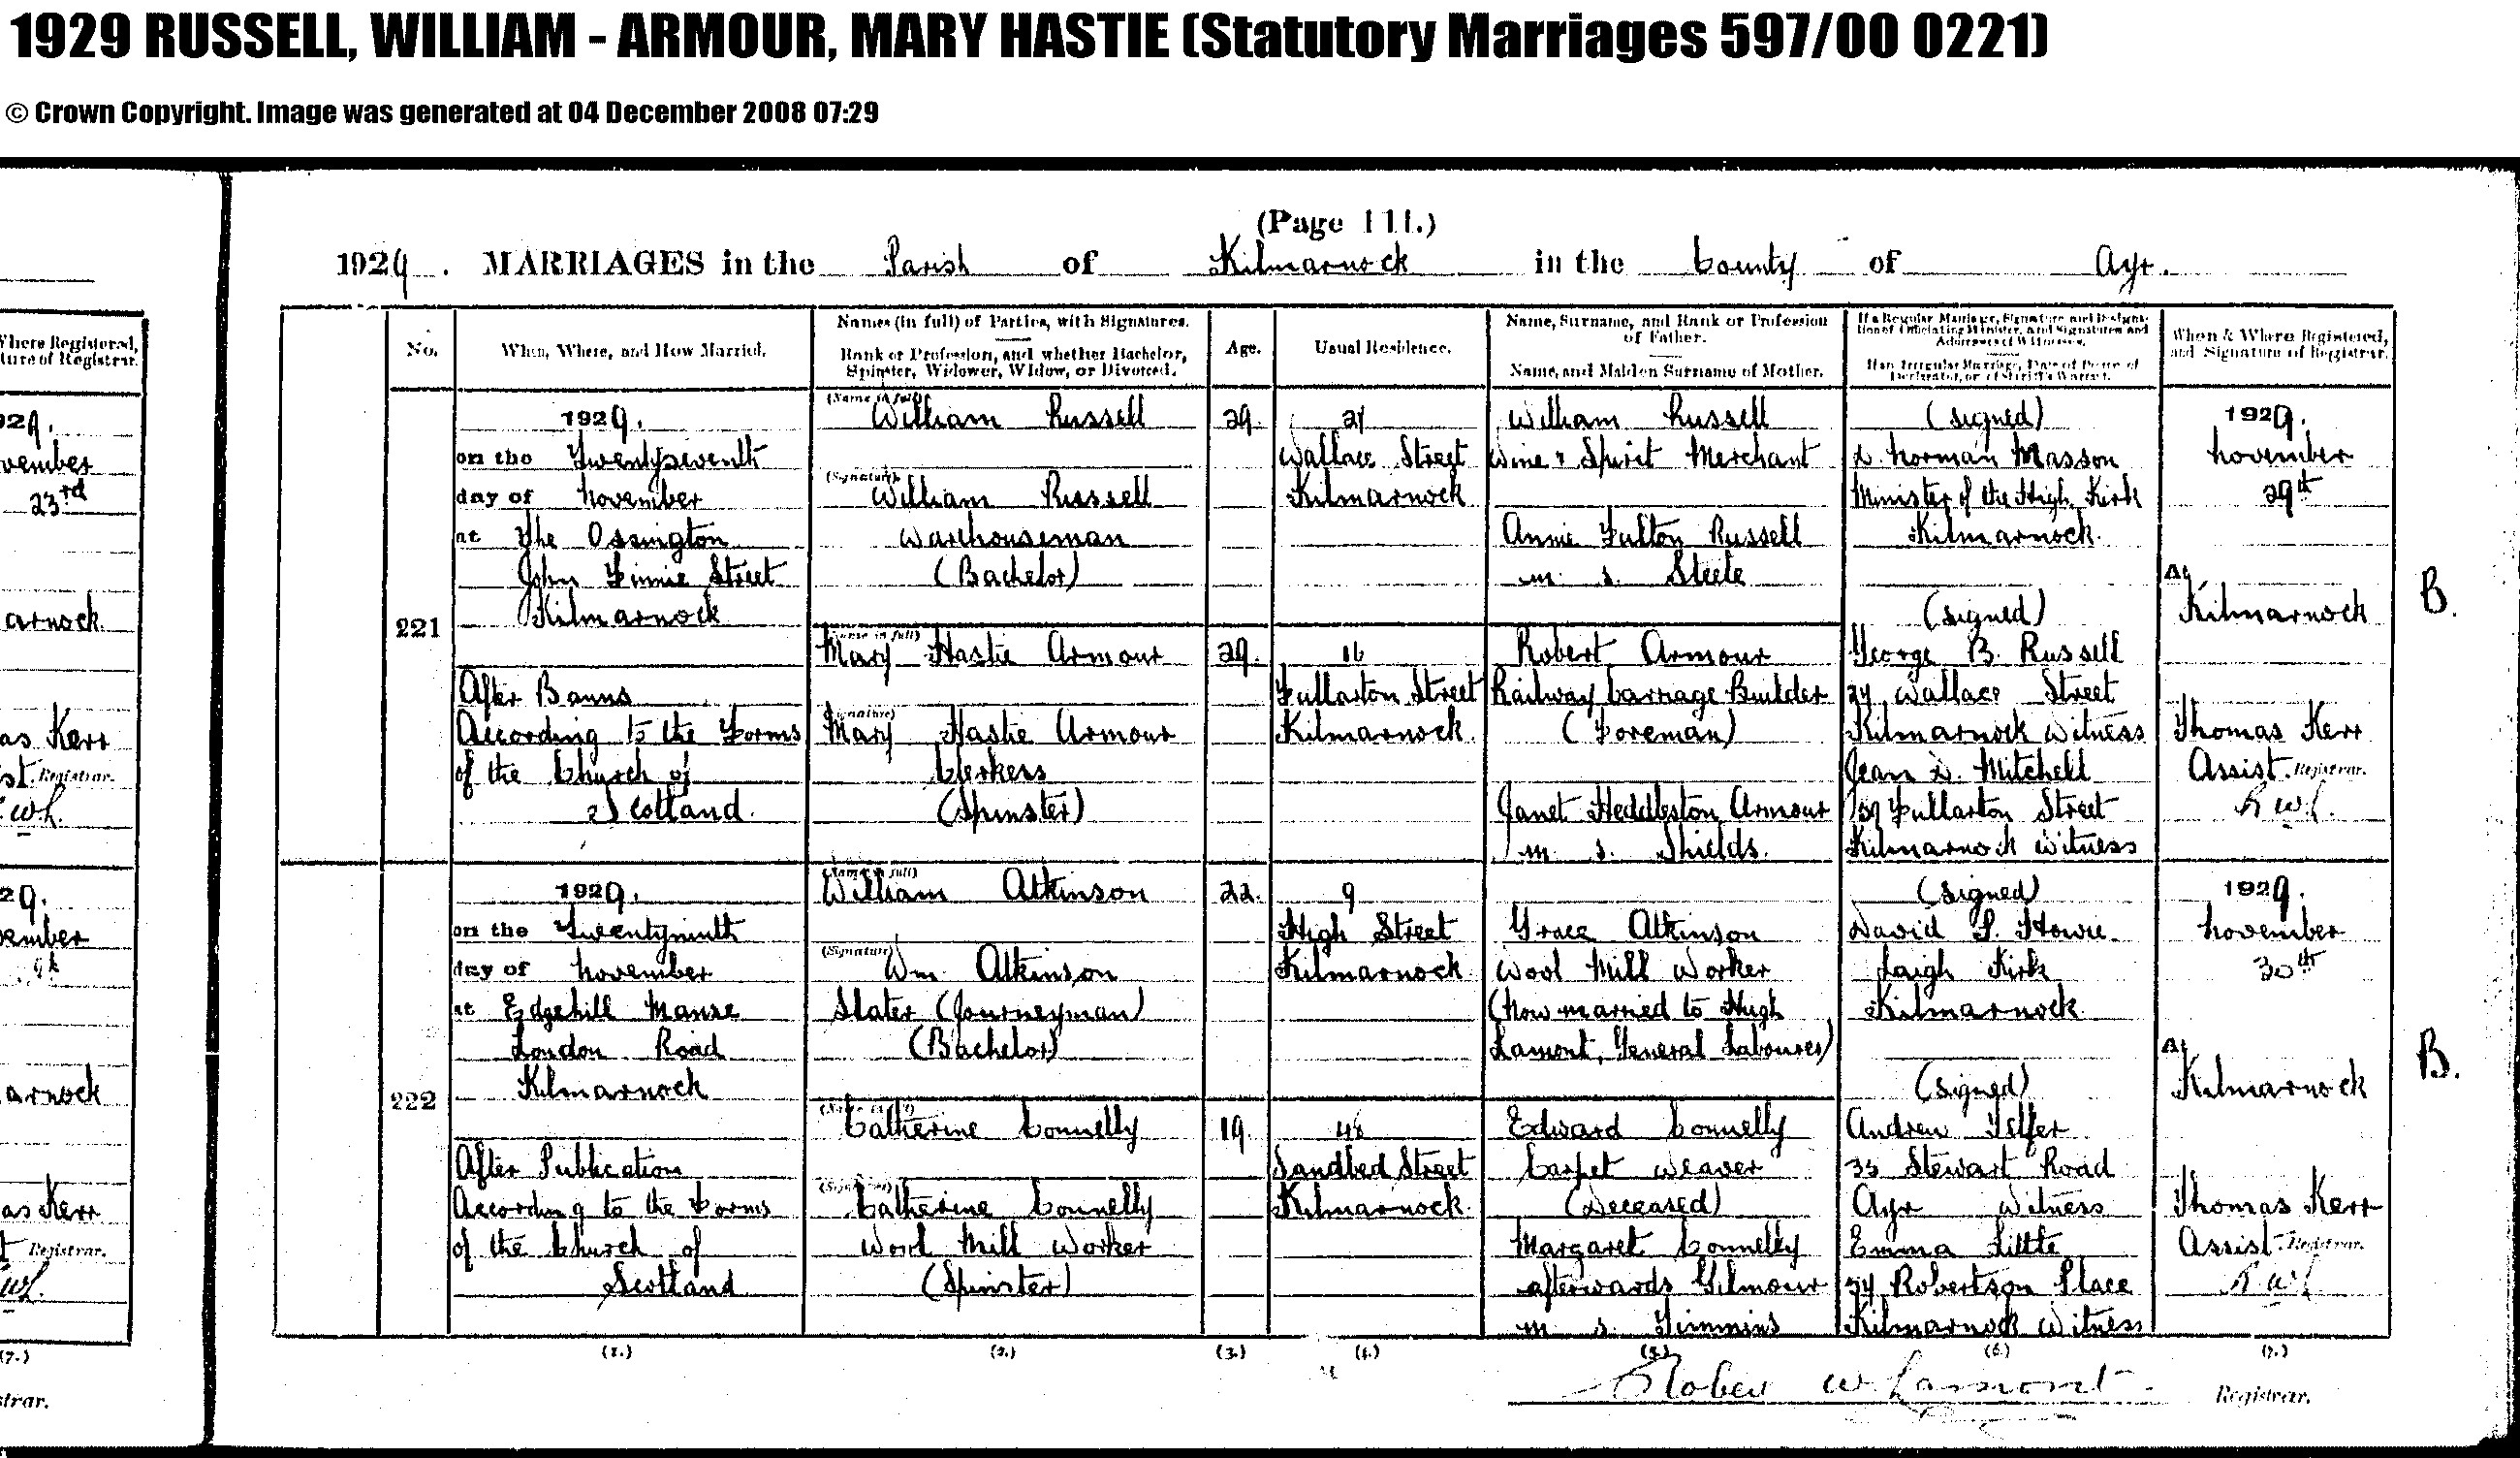 1929 RUSSELL, WILLIAM - ARMOUR, MARY HASTIE (Statutory Marriages 597/00 0221)
© Crown Copyright. Image was generated at 04 December 2008 07:29
(Page 111.)
1929. MARRIAGES in the Parish of Kilmarnock in the County of Ayr.
Where Registered,
ture of Registrar.
929.
vember
23rd
arnock
as Kerr
st. Registrar.
No.
When, Where, and How Married.
Names (in full) of Parties, with Signatures.
Rank or Profession, and whether Bachelor,
Spinster, Widower, Widow, or Divorced.
Age.
Usual Residence.
Name, Surname, and Rank or Profession
of Father.
Name, and Maiden Surname of Mother.
If a Regular Marriage, Signature and Designa-
tion of Officiating Minister, and Signatures and
Addresses of Witnesses.
If an Irregular Marriage, Date of Decree of
Declarator, or of Sheriff's Warrant.
When & Where Registered,
and Signature of Registrar.
221
1929.
on the Twentyseventh
day of November
at The Ossington
John Finnie Street
Kilmarnock
After Banns
According to the Forms
of the Church of
Scotland.
(Name in full)
William Russell
(Signature)
William Russell
Warehouseman
(Bachelor)
(Name in full)
Mary Hastie Armour
(Signature)
Mary Hastie Armour
Clerkess
(Spinster)
29.
29.
Wallace Street
Kilmarnock
16
Fullarton Street
Kilmarnock
William Russell
Wine & Spirit Merchant
Annie Fulton Russell
m. s. Steele
Robert Armour
Railway Carriage Builder
(Foreman)
Janet Heddleston Armour
m. s. Shields.
(signed)
D. Norman Masson
Minister of the High Kirk
Kilmarnock.
(signed)
George B. Russell
Wallace Street
Kilmarnock Witness
Jean D. Mitchell
Fullarton Street
Kilmarnock Witness
1929.
November
29th
At
Kilmarnock
Thomas Kerr
Assist. Registrar.
B.
929.
vember
arnock
as Kerr
t Registrar.
222
1929.
on the Twentyninth
day of November
at Edgehill Manse
London Road
Kilmarnock
After Publication
According to the Forms
of the Church of
Scotland
(Name in full)
William Atkinson
(Signature)
Wm. Atkinson
Slater (Journeyman)
(Bachelor)
(Name in full)
Catherine Connelly
(Signature)
Catherine Connelly
Wool Mill Worker
(Spinster)
22.
19.
9
High Street
Kilmarnock
48
Sandbed Street
Kilmarnock.
Grace Atkinson
Wool Mill Worker
(Now married to Hugh
Lamont, General Labourer)
Edward Connelly
Carpet Weaver
(Deceased)
Margaret Connelly
afterwards Gilmour
m. s. Timmins
(signed)
David P. Howie
Laigh Kirk
Kilmarnock
(signed)
Andrew Telfer
33 Stewart Road
Ayr Witness
Emma Little
Robertson Place
Kilmarnock Witness
1929.
November
30th
At
Kilmarnock
Thomas Kerr
Assist. Registrar.
B.
(7.)
(1.) (2.) (3.) (4.) (5.) (6.) (7.)
strar.
Robert W. Lamont. Registrar.